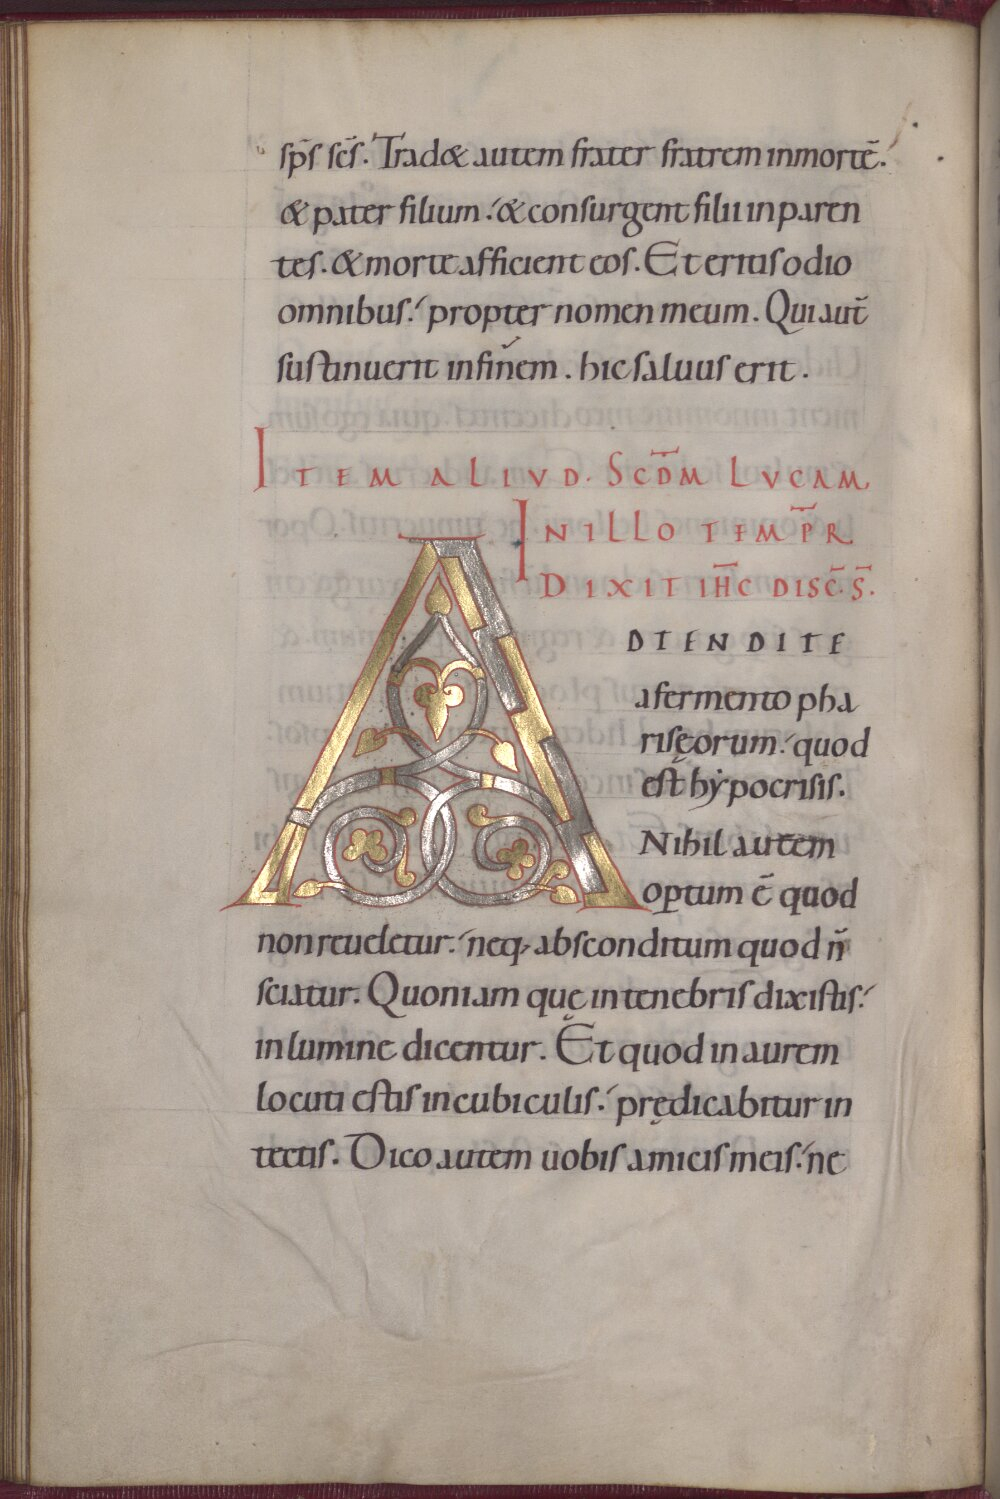 sp̄s sc̄s. Trad& autem frater fratrem inmortē.
& pater filium: & consurgent filii inparen
tes. & morte afficient eos. Et eritis odio
omnibus: propter nomen meum. Qui aut̄
sustinuerit infinem. hic saluus erit.
ITEM ALIVD. SCD̄M LVCAM.
INILLO TEMP̄R
DIXIT IH̄C DISC̄. S̄.
ADTENDITE
a fermento pha
risęorum: quod
est hẏpocrisis.
Nihil autem
op̱tum ē quod
non reueletur: neq; absconditum quod n̄
sciatur. Quoniam quę intenebris dixistis:
in lumine dicentur. Et quod in aurem
locuti estis in cubiculis: prędicabitur in
tectis. Dico autem uobis amicis meis: ne